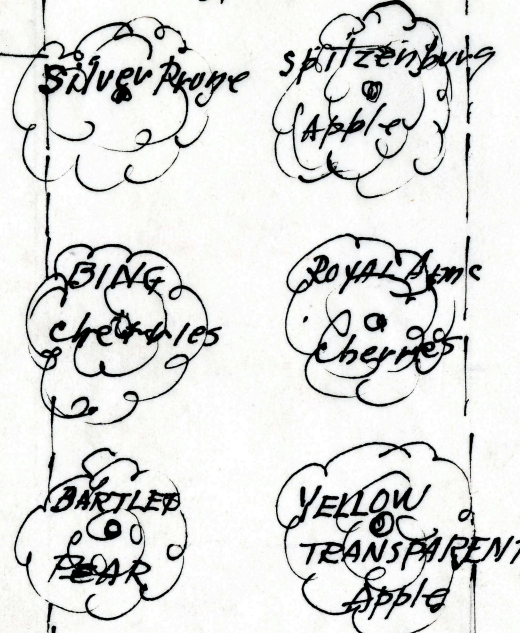 Silver Prune
Spitzenburg
Apple
BING
cherries
ROYAL Anne
cherries
BARTLET
PEAR
YELLOW
TRANSPARENT
Apple